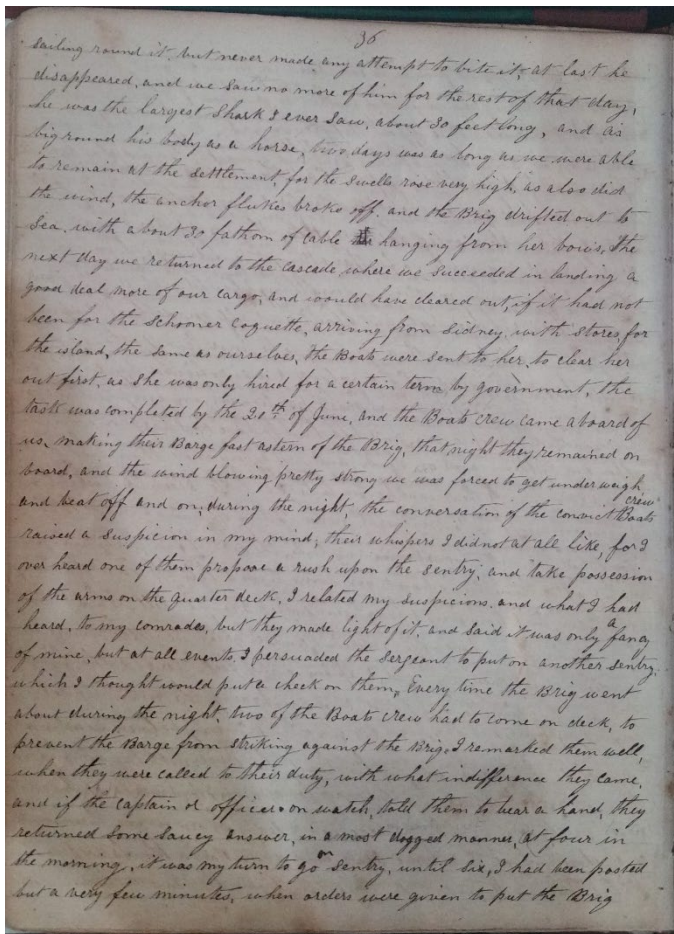 36
sailing round it, but never made any attempt to bite it, at last he
disappeared, and we saw no more of him for the rest of that day,
he was the largest Shark I ever saw, about 30 feet long, and as
big round his body as a horse, two days was as long as we were able
to remain at the settlement, for the swells rose very high, as also did
the wind, the anchor flukes broke off, and the Brig drifted out to
Sea, with about 30 fathom of cable hanging from her bows, The
next day we returned to the Cascade, where we succeeded in landing a
good deal more of our cargo, and would have cleared out, if it had not
been for the Schooner Coquette, arriving from Sidney, with stores for
the island, the same as ourselves, the Boats were sent to her, to clear her
out first, as she was only hired for a certain term by government, the
task was completed by the 20th of June, and the Boats crew came aboard of
us, making their Barge fast astern of the Brig, that night they remained on
board, and the wind blowing pretty strong we was forced to get underweigh
and beat off and on, during the night, the conversation of the convict Boats crew
raised a suspicion in my mind, their whispers I did not at all like, for I
over heard one of them propose a rush upon the sentry, and take possession
of the arms on the quarter deck, I related my suspicions, and what I had
heard, to my comrades, but they made light of it, and said it was only a fancy
of mine, but at all events, I persuaded the Sergeant to put on another sentry,
which I thought would put a check on them, Every time the Brig went
about during the night, two of the Boats crew had to come on deck, to
prevent the Barge from striking against the Brig, I remarked them well,
when they were called to their duty, with what indifference they came,
and if the captain or officer on watch, told them to bear a hand, they
returned some saucy answer, in a most dogged manner, at four in
the morning, it was my turn to go on sentry, until six, I had been posted
but a very few minutes, when orders were given to put the Brig